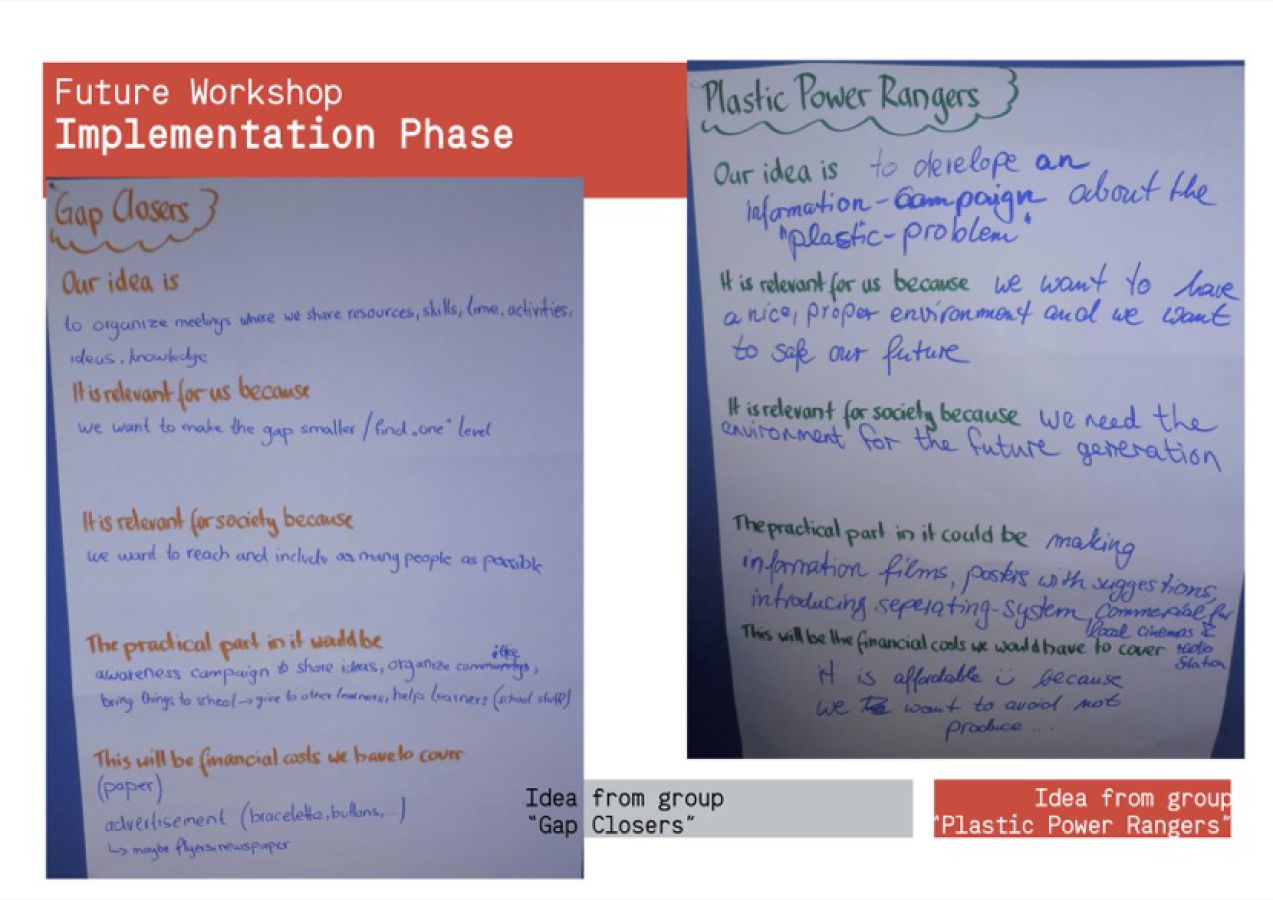 Future Workshop
Implementation Phase
Gap Closers
Our idea is
to organize meetings where we share resources, skills, time, activities,
ideas, knowledge
It is relevant for us because
we want to make the gap smaller / find „one" level
It is relevant for society because
we want to reach and include as many people as possible
The practical part in it would be
awareness campaign to share ideas, organize
bring things to school → give to other learners, help learners (school stuff)
This will be financial costs we have to cover
(paper)
advertisement (bracelette, buttons, ...)
↳ maybe flyers newspaper
Plastic Power Rangers
Our idea is to develope an
information-campaign about the
"plastic-problem"
It is relevant for us because we want to have
a nice, proper environment and we want
to safe our future
It is relevant for society because we need the
environment for the future generation
The practical part in it could be making
information films, posters with suggestions,
introducing seperating-system, commercial for
local cinemas &
This will be the financial costs we would have to cover radio
station
it is affordable ü because
we want to avoid not
produce ...
Idea from group
"Gap Closers"
Idea from group
"Plastic Power Rangers"